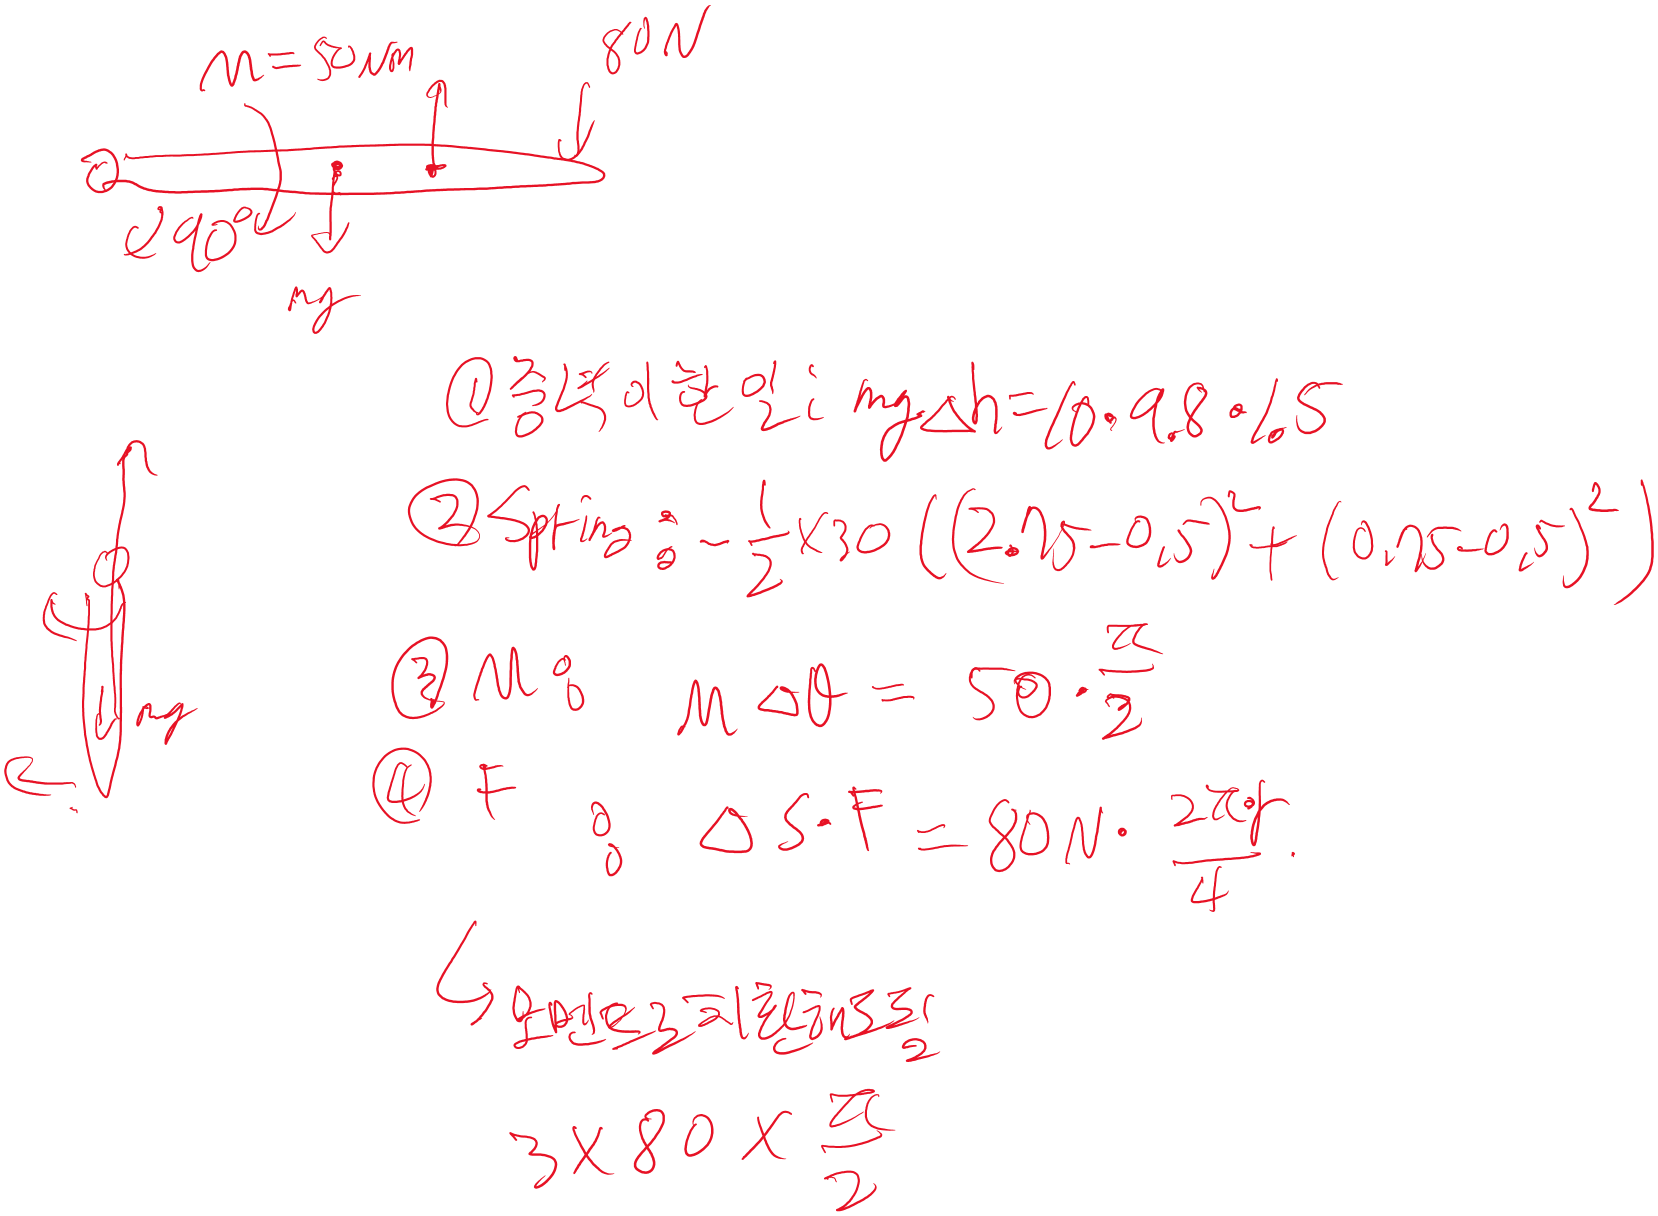 M=50NM
80N
90°
mg
① 중력이 한 일: mgΔh=10·9.8·1.5
② Spring: -1/2×30((2.75-0.5)²+(0.75-0.5)²)
mg
③ M: MΔθ=50·π/2
④ F: ΔS·F=80N·2πr/4.
↳ 모멘트로 치환해도 됨
3×80×π/2